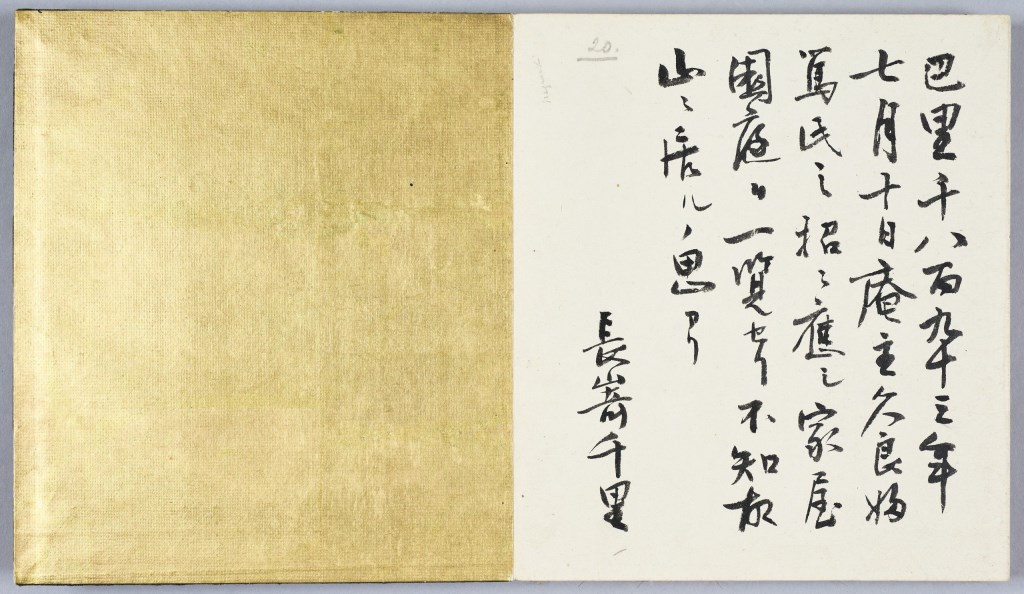 巴里千八百九十三年
七月十日庵主久良婦
篤氏之招ニ應し家屋
園庭ヲ一覧セリ不知故
山ニ居ルノ思アリ
長嵜千里
20.